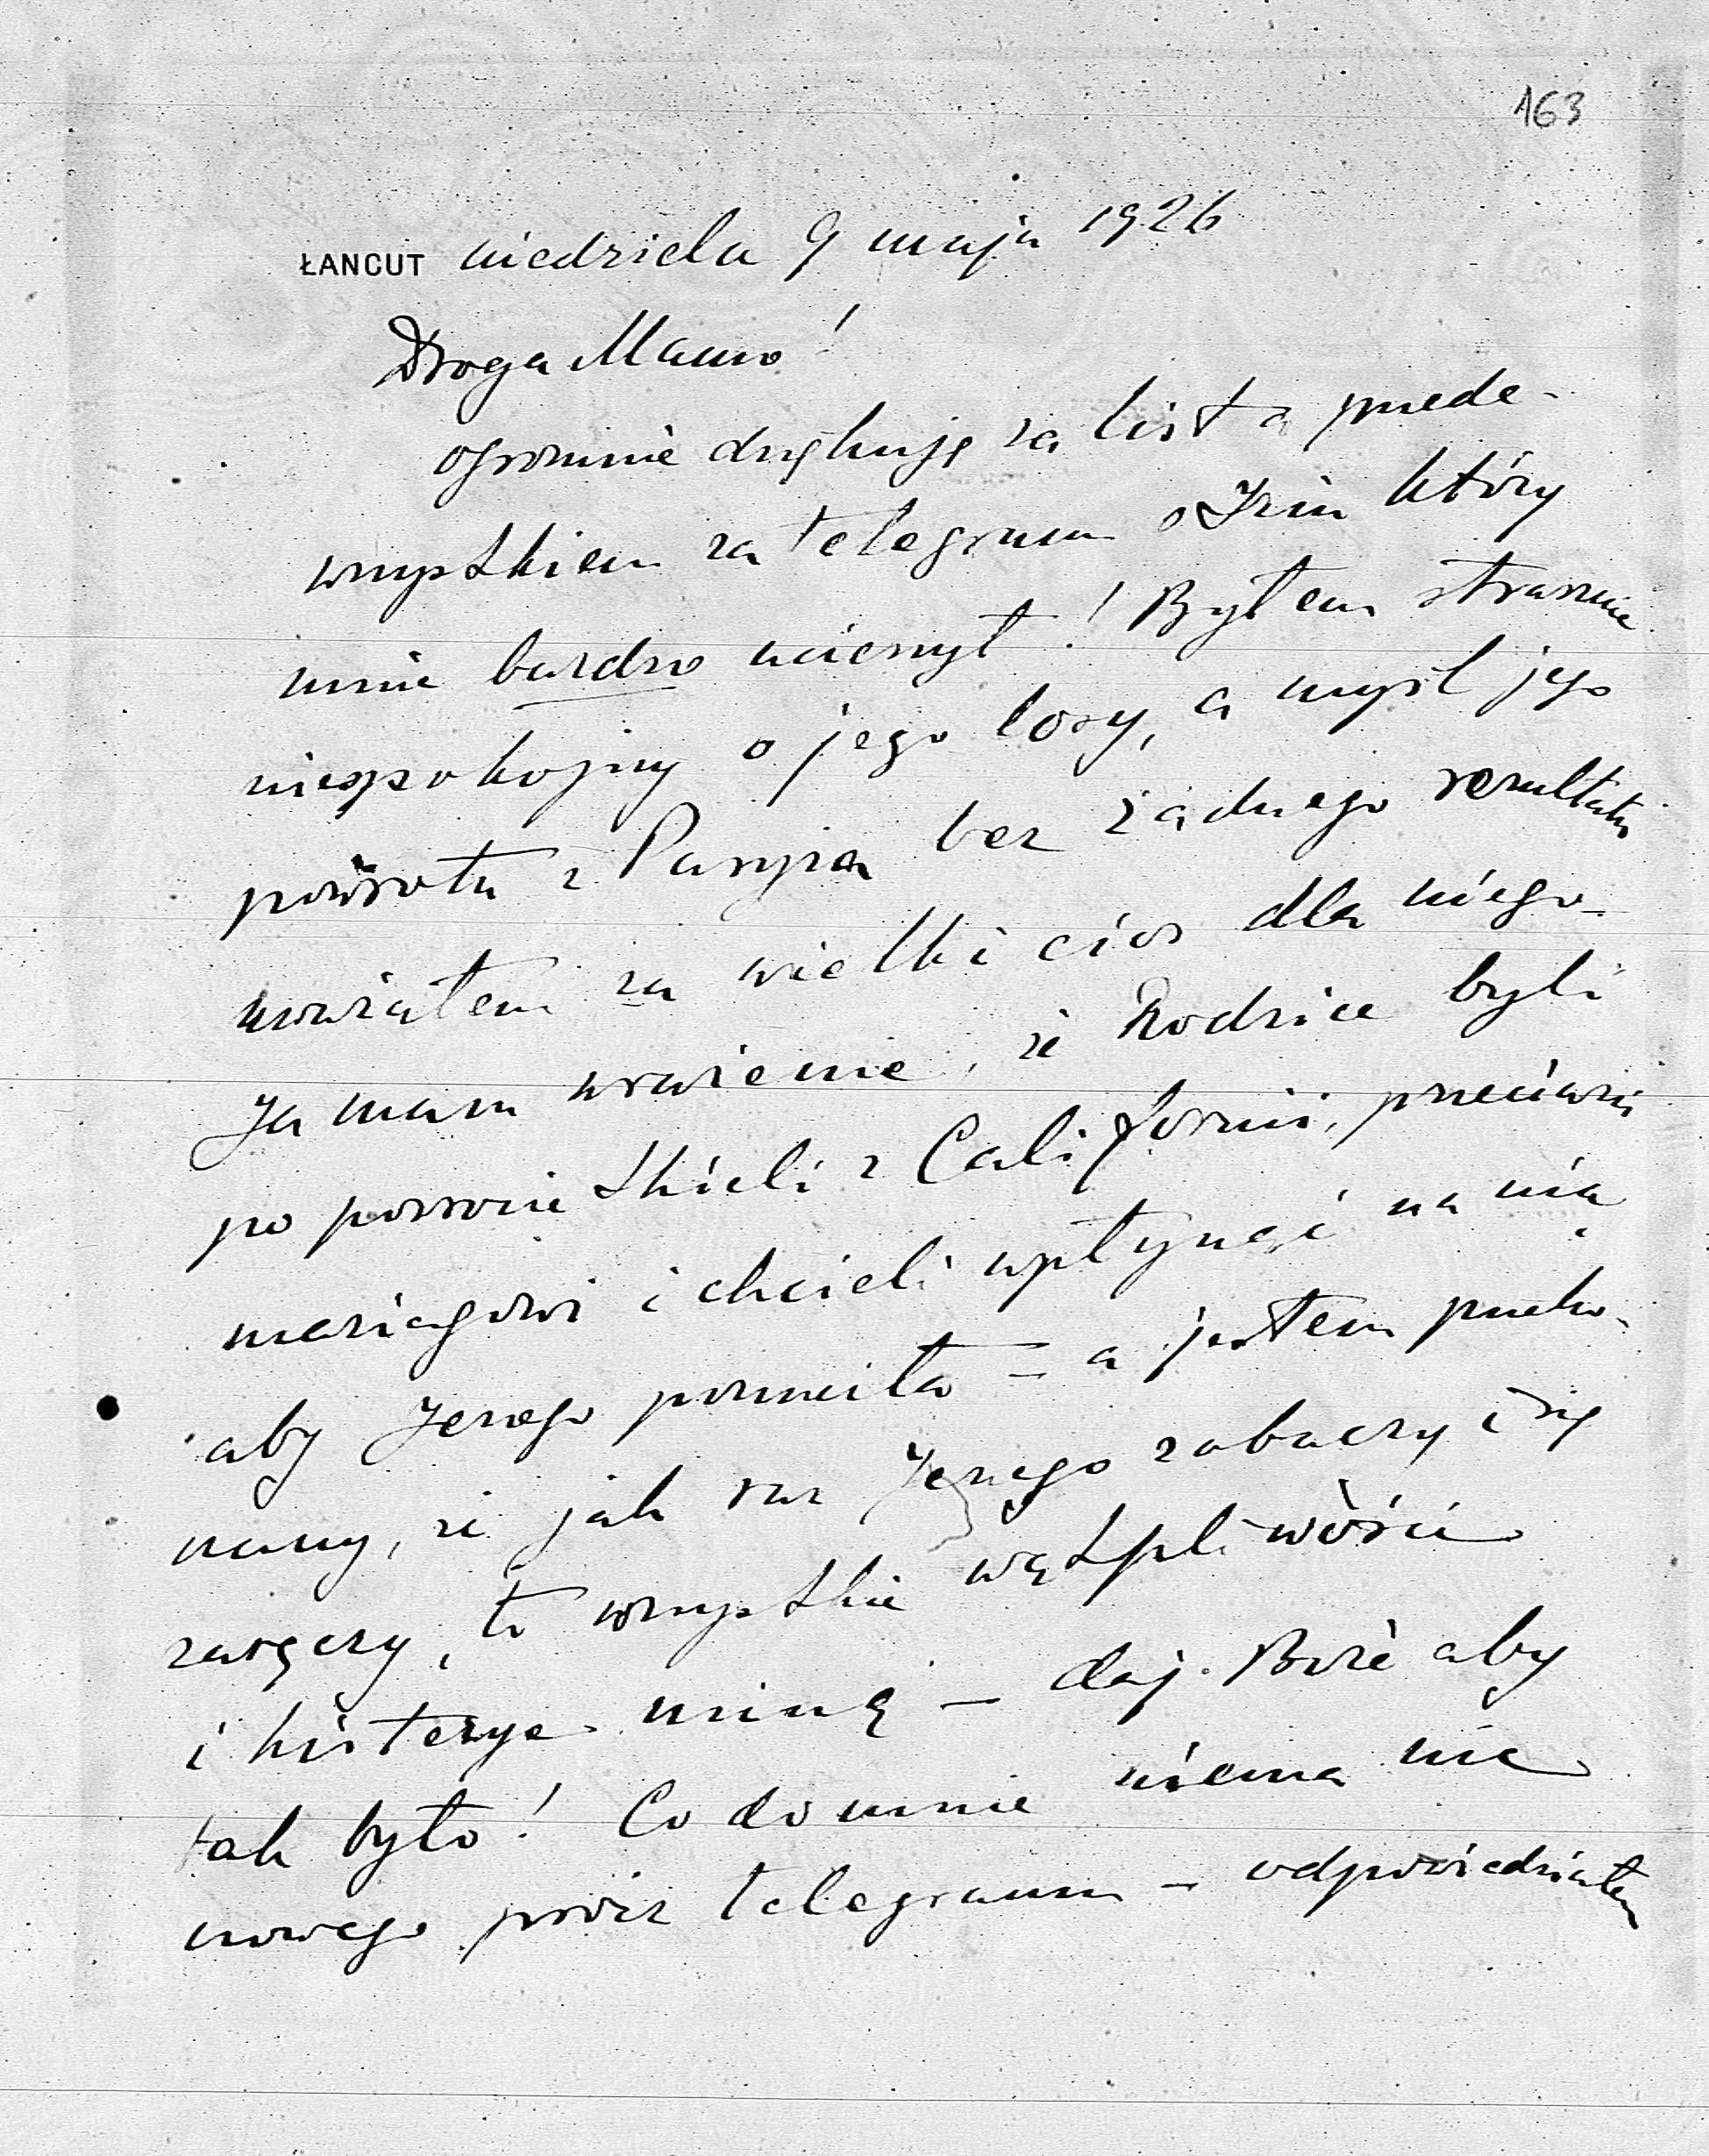 163
ŁANCUT niedziela 9 maja 1926
Droga Mamo!
ogromnie dziękuję za list a przede-
wszystkiem za telegram o Jziu który
mnie bardzo ucieszył! Byłem strasznie
niespokojny o jego losy, a myśl jego
powrotu z Paryża bez żadnego rezultatu
uważałem za wielki cios dla niego.
Ja mam wrażenie, że Rodzice byli
po powrocie Skieli z Californii, przeciwni
mariagowi i chcieli wpłynąć na nią
aby Jerzego porzuciła – a jestem przeko-
nany, że jak raz Jerzego zobaczy i się
zaręczy, to wszystkie wątpliwości
i histerye miną – daj Boże aby
tak było! Co do mnie niema nic
nowego prócz telegramu – odpowiedziałem